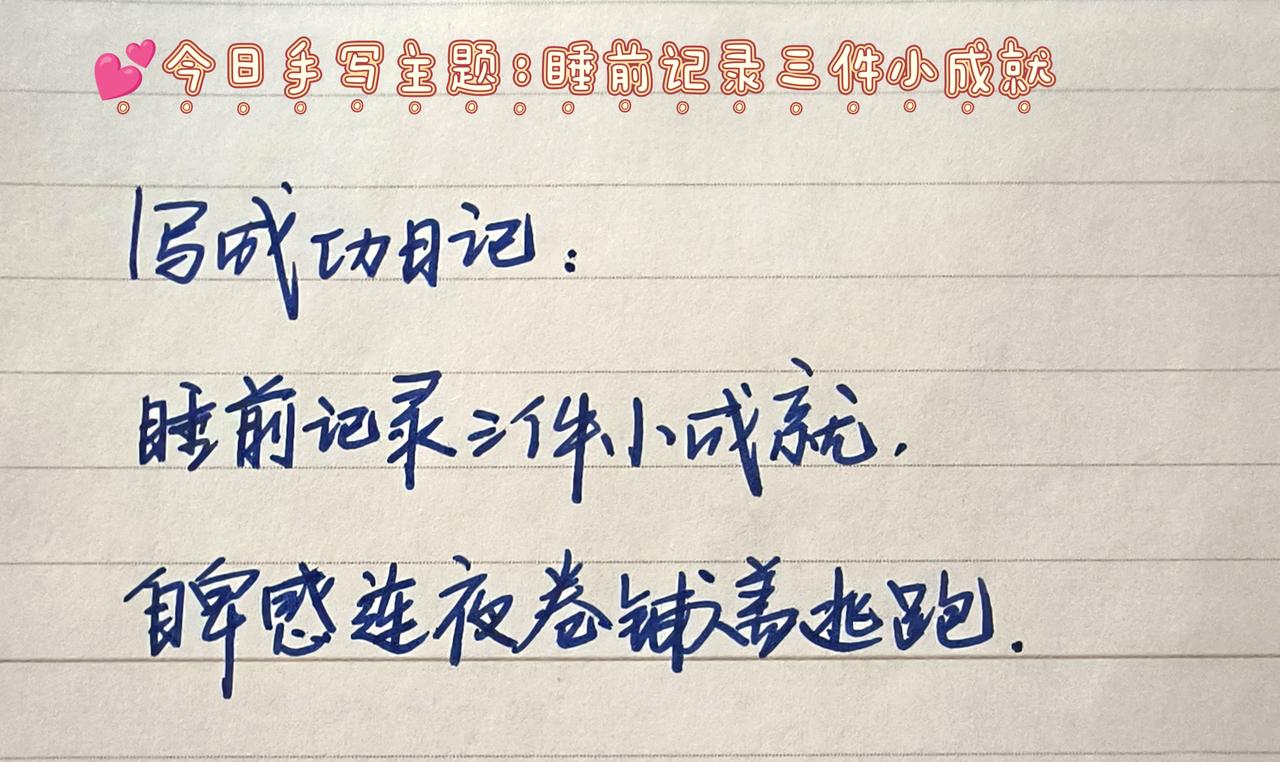 💕今日手写主题:睡前记录三件小成就
写成功日记:
睡前记录三件小成就.
自卑感连夜卷铺盖逃跑.